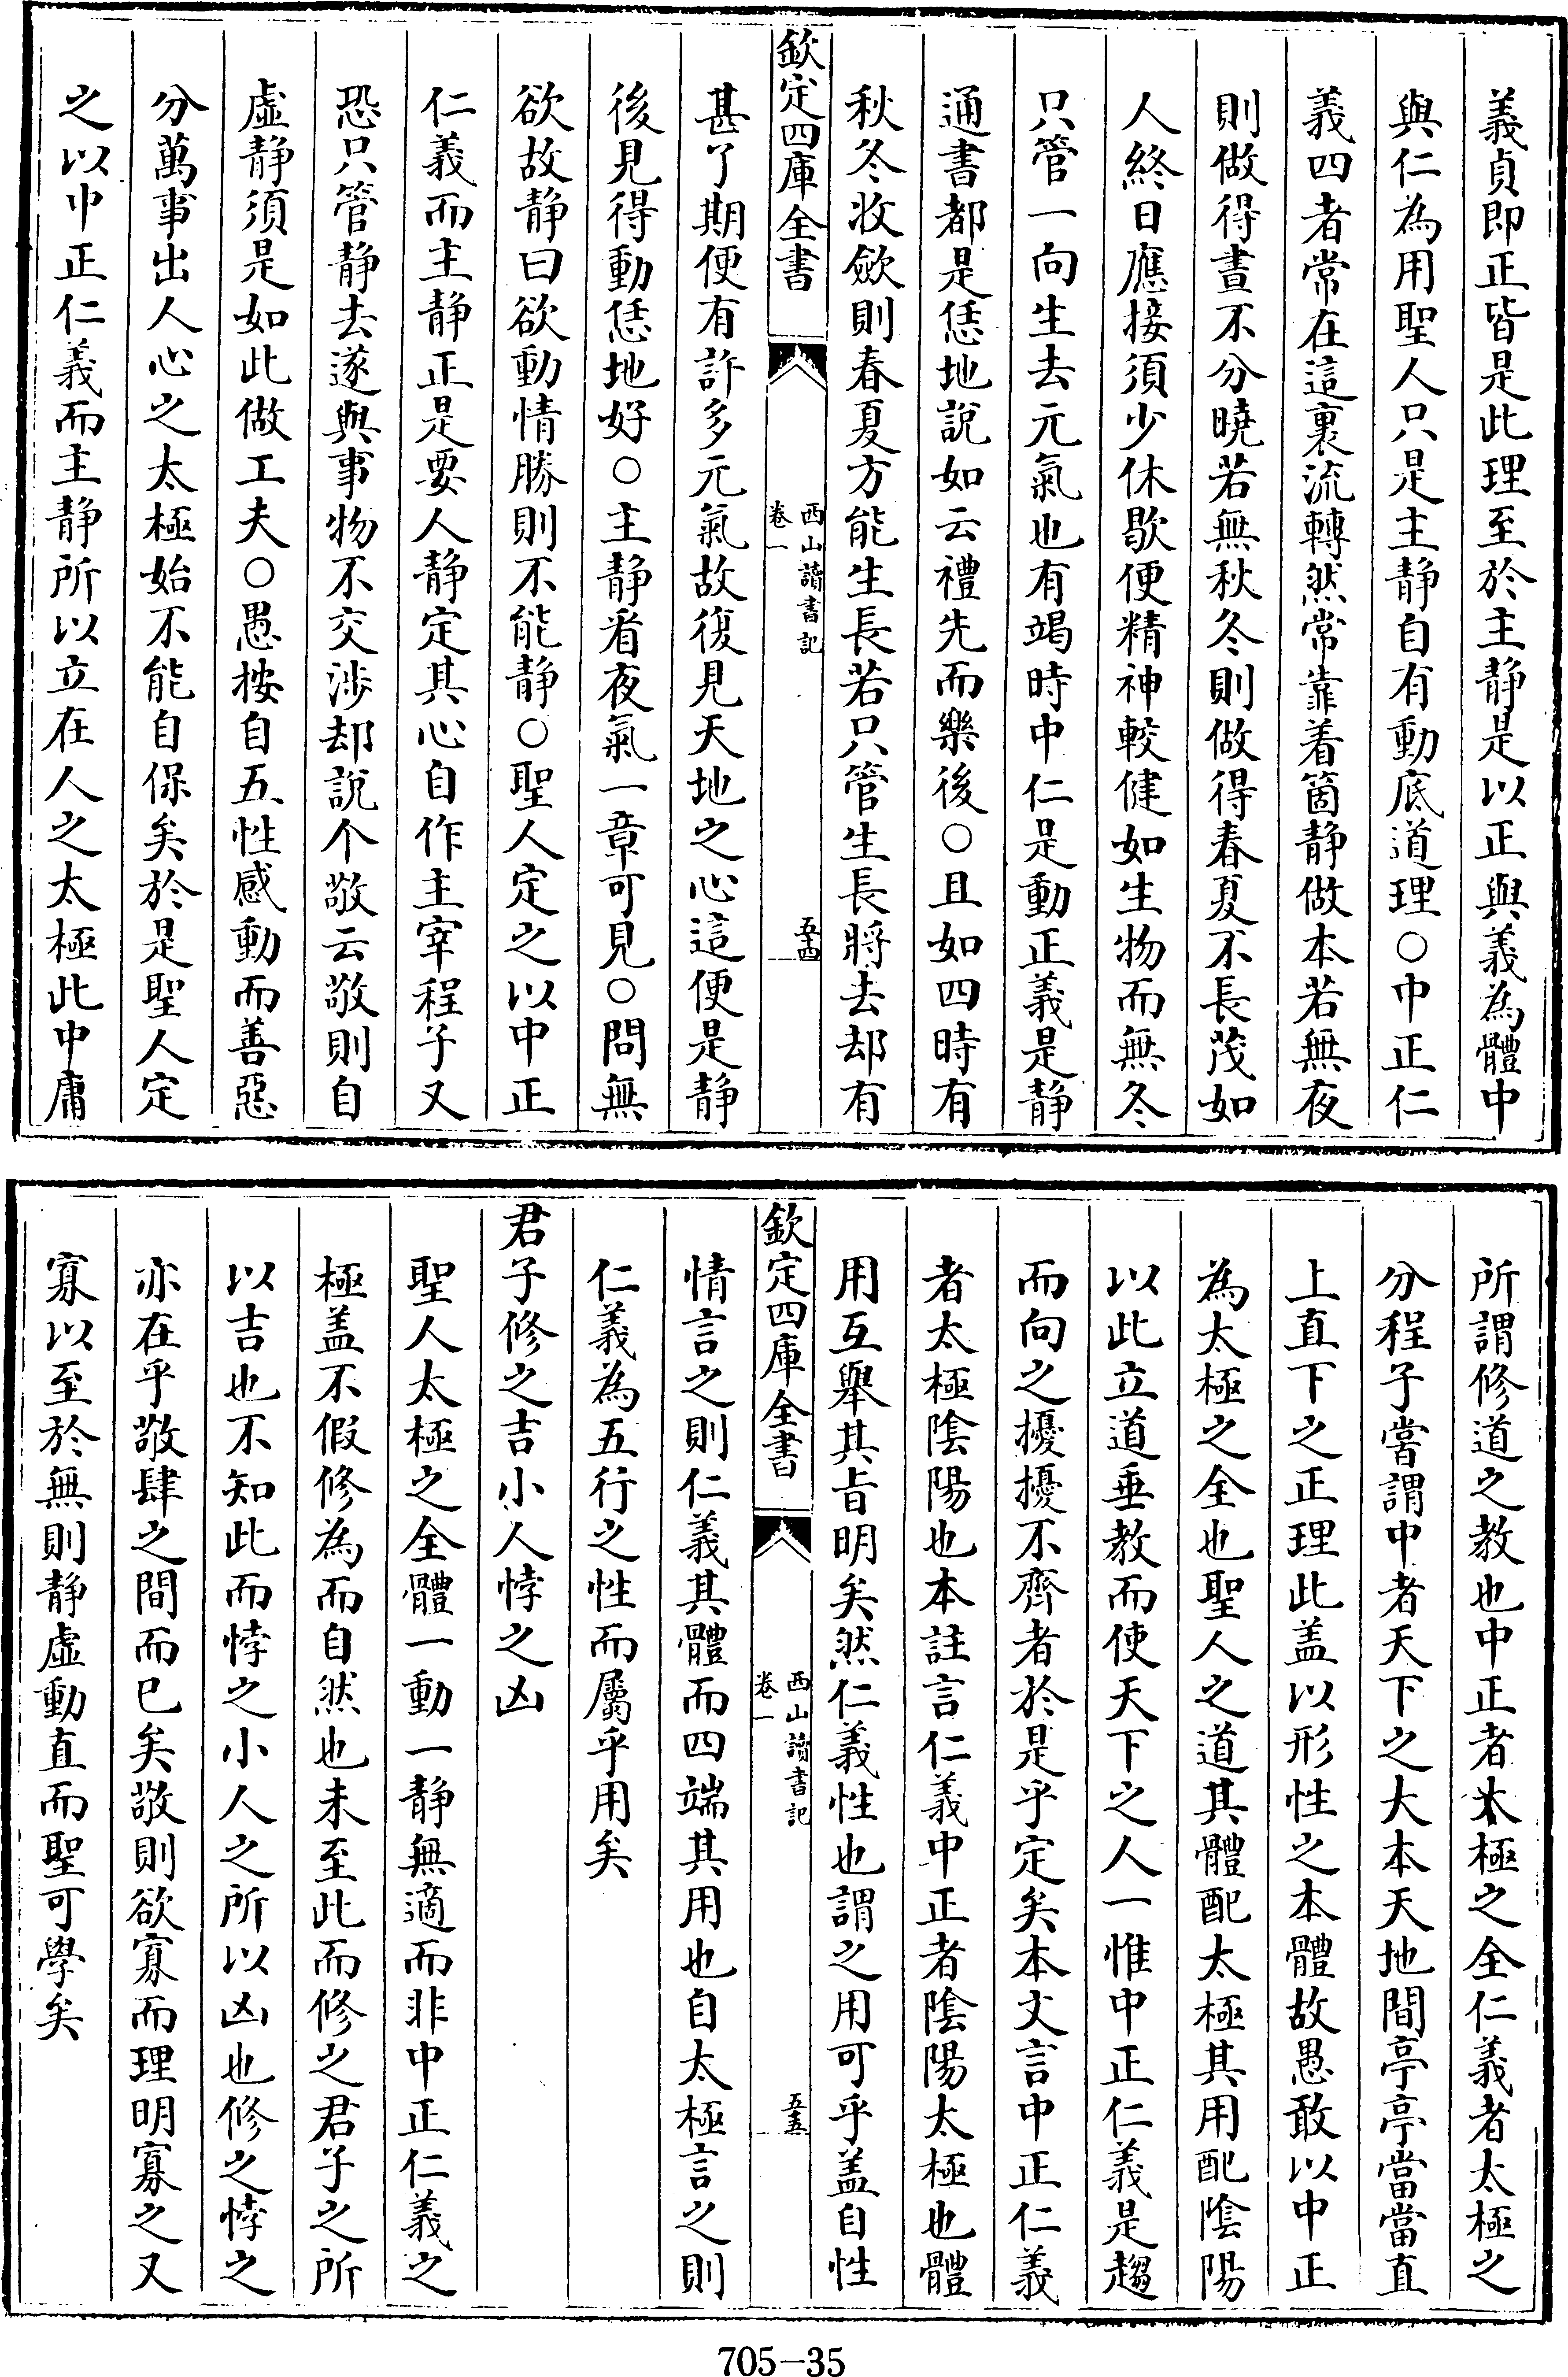 義貞即正皆是此理至於主静是以正與義為體中
與仁為用聖人只是主静自有動底道理○中正仁
義四者常在這裏流轉然常靠着箇静做本若無夜
則做得晝不分曉若無秋冬則做得春夏不長茂如
人終日應接須少休歇便精神較健如生物而無冬
只管一向生去元氣也有竭時中仁是動正義是静
通書都是恁地說如云禮先而樂後○且如四時有
秋冬收歛則春夏方能生長若只管生長將去却有
欽定四庫全書
西山讀書記
卷一
五十四
甚了期便有許多元氣故復見天地之心這便是静
後見得動恁地好○主静看夜氣一章可見○問無
欲故静曰欲動情勝則不能静○聖人定之以中正
仁義而主静正是要人静定其心自作主宰程子又
恐只管静去遂與事物不交渉却說个敬云敬則自
虛静須是如此做工夫○愚按自五性感動而善惡
分萬事出人心之太極始不能自保矣於是聖人定
之以中正仁義而主静所以立在人之太極此中庸
所謂修道之教也中正者太極之全仁義者太極之
分程子嘗謂中者天下之大本天地間亭亭當當直
上直下之正理此盖以形性之本體故愚敢以中正
為太極之全也聖人之道其體配太極其用配隂陽
以此立道垂教而使天下之人一惟中正仁義是趨
而向之擾擾不齊者於是乎定矣本文言中正仁義
者太極隂陽也本註言仁義中正者隂陽太極也體
用互舉其旨明矣然仁義性也謂之用可乎盖自性
欽定四庫全書
西山讀書記
卷一
五十五
情言之則仁義其體而四端其用也自太極言之則
仁義為五行之性而屬乎用矣
君子修之吉小人悖之凶
聖人太極之全體一動一静無適而非中正仁義之
極盖不假修為而自然也未至此而修之君子之所
以吉也不知此而悖之小人之所以凶也修之悖之
亦在乎敬肆之間而已矣敬則欲寡而理明寡之又
寡以至於無則静虛動直而聖可學矣
705-35